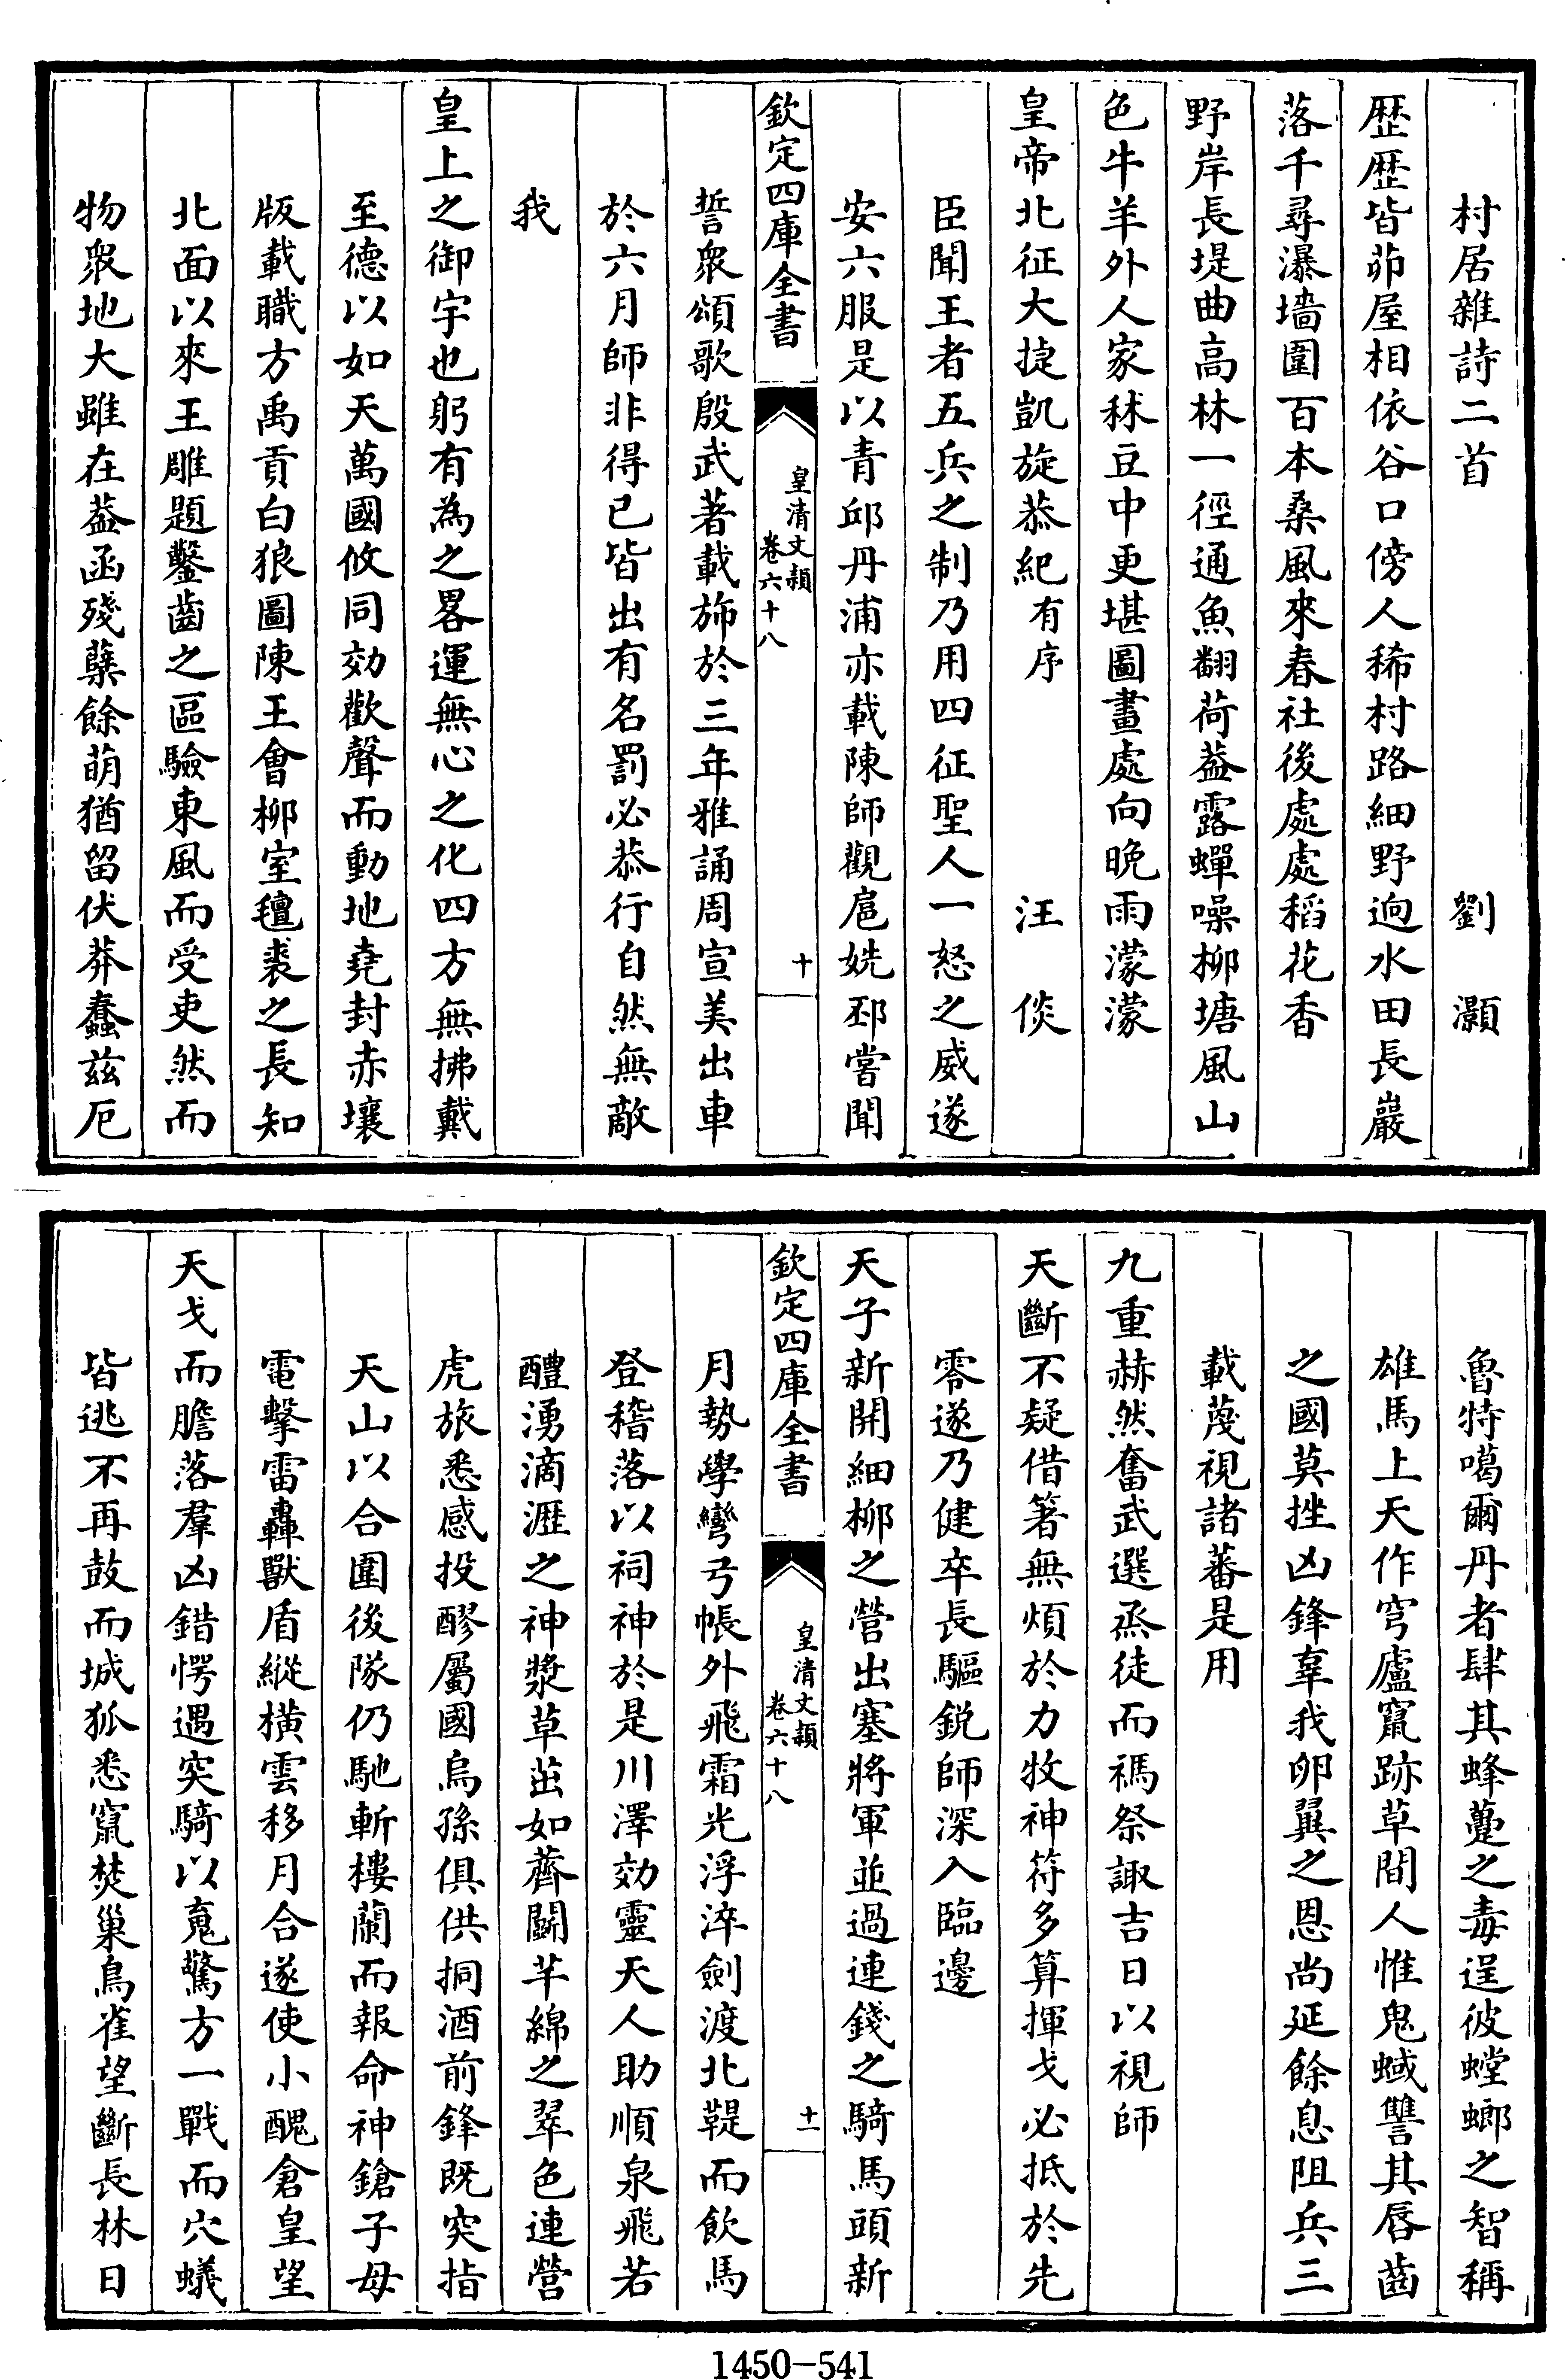 村居雜詩二首　劉灝
歴歴皆茆屋相依谷口傍人稀村路細野逈水田長巖
落千尋瀑墻圍百本桑風來春社後處處稻花香
野岸長堤曲高林一徑通魚翻荷葢露蟬噪柳塘風山
色牛羊外人家秫豆中更堪圖畫處向晚雨濛濛
皇帝北征大捷凱旋恭紀有序　汪倓
臣聞王者五兵之制乃用四征聖人一怒之威遂
安六服是以青邱丹浦亦載陳師觀扈姺邳嘗聞
欽定四庫全書　皇清文穎　卷六十八　十
誓衆頌歌殷武著載斾於三年雅誦周宣美出車
於六月師非得已皆出有名罰必恭行自然無敵
我
皇上之御宇也躬有為之畧運無心之化四方無拂戴
至德以如天萬國攸同効歡聲而動地堯封赤壤
版載職方禹貢白狼圖陳王會柳室氊裘之長知
北面以來王雕題鑿齒之區驗東風而受吏然而
物衆地大雖在葢函殘蘖餘萌猶留伏莽蠢兹厄
魯特噶爾丹者肆其蜂蠆之毒逞彼螳螂之智稱
雄馬上天作穹廬竄跡草間人惟鬼蜮讐其唇齒
之國莫挫凶鋒辜我卵翼之恩尚延餘息阻兵三
載蔑視諸蕃是用
九重赫然奮武選烝徒而禡祭諏吉日以視師
天斷不疑借箸無煩於力牧神符多算揮戈必抵於先
零遂乃健卒長驅鋭師深入臨邊
天子新開細柳之營出塞將軍並過連錢之騎馬頭新
欽定四庫全書　皇清文穎　卷六十八　十一
月勢學彎弓帳外飛霜光浮淬劍渡北鞮而飲馬
登稽落以祠神於是川澤効靈天人助順泉飛若
醴湧滴瀝之神漿草茁如薺闢芊綿之翠色連營
虎旅悉感投醪屬國烏孫俱供挏酒前鋒既突指
天山以合圍後隊仍馳斬樓蘭而報命神鎗子母
電擊雷轟獸盾縱橫雲移月合遂使小醜倉皇望
天戈而膽落羣凶錯愕遇突騎以䰟驚方一戰而穴蟻
皆逃不再鼓而城狐悉竄焚巢鳥雀望斷長林日
1450-541